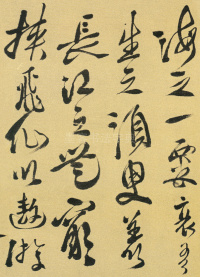 海之一粟哀吾
生之須臾羨
長江之無窮
挾飛仙以遨遊